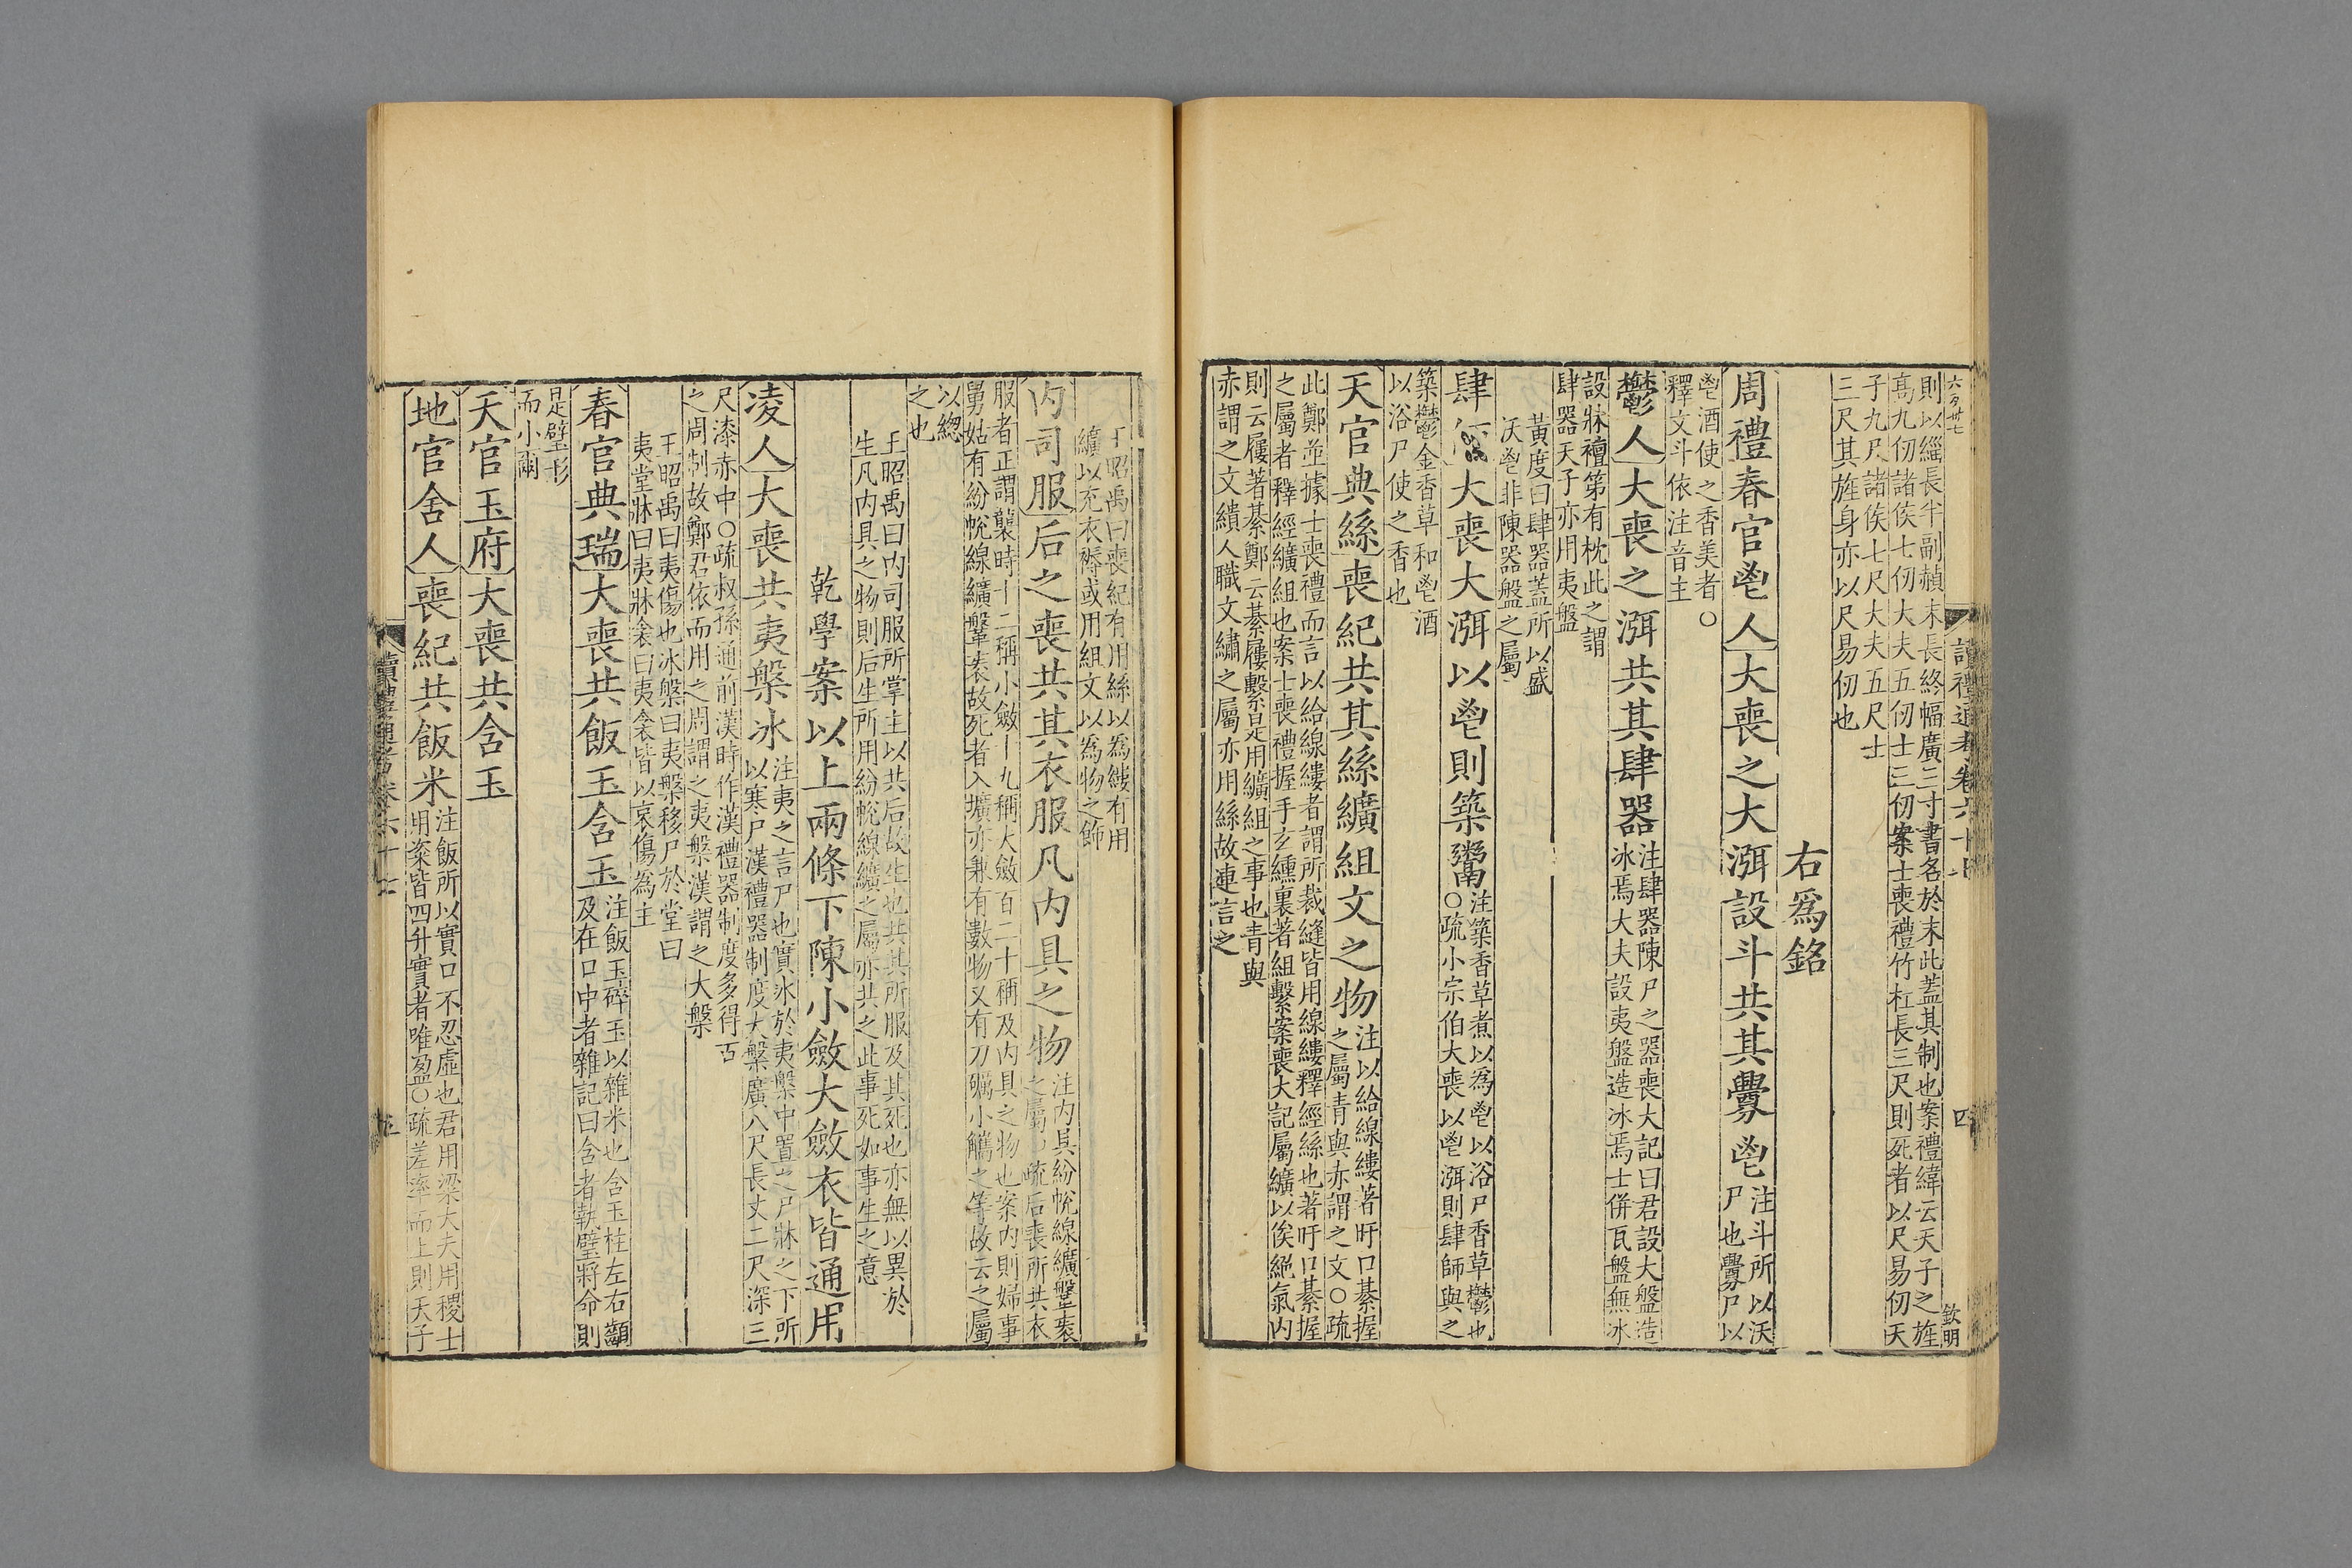 則以緇長半副赬末長終幅廣三寸書名於末此蓋其制也案禮緯云天子之旌
高九仞諸侯七仞大夫五仞士三仞案士喪禮竹杠長三尺則死者以尺易仞天
子九尺諸侯七尺大夫五尺士
三尺其旌身亦以尺易仞也
右爲銘
周禮春官鬯人大喪之大渳設斗共其釁鬯
注斗所以沃
尸也釁尸以
鬯酒使之香美者○
釋文斗依注音主
鬱人大喪之渳共其肆器
注肆器陳尸之器喪大記曰君設大盤造
冰焉大夫設夷盤造冰焉士併瓦盤無冰
設牀襢第有枕此之謂
肆器天子亦用夷盤
黃度曰肆器蓋所以盛
沃鬯非陳器盤之屬
肆師大喪大渳以鬯則築鬻
注築香草煮以爲鬯以浴尸香草鬱也
○疏小宗伯大喪以鬯渳則肆師與之
築鬱金香草和鬯酒
以浴尸使之香也
天官典絲喪紀共其絲纊組文之物
注以給線縷著盱口綦握
之屬青與赤謂之文○疏
此鄭並據士喪禮而言以給線縷者謂所裁縫皆用線縷釋經絲也著盱口綦握
之屬者釋經纊組也案士喪禮握手玄纁裏著組繫案喪大記屬纊以俟絕氣內
則云屨著綦鄭云綦屨繫是用纊組之事也青與
赤謂之文繢人職文繡之屬亦用絲故連言之
讀禮通考卷六十七
四
欽明
王昭禹曰喪紀有用絲以爲縷有用
纊以充衣褥或用組文以爲物之飾
內司服后之喪共其衣服凡內具之物
注內具紛帨線纊鞶袠
之屬○疏后喪所共衣
服者正謂襲時十二稱小斂十九稱大斂百二十稱及內具之物也案內則婦事
舅姑有紛帨線纊鞶袠故死者入壙亦兼有數物又有刀礪小觿之等故云之屬
以總
之也
王昭禹曰內司服所掌主以共后故生也共其所服及其死也亦無以異於
生凡內具之物則后生所用紛帨線纊之屬亦共之此事死如事生之意
乾學案以上兩條下陳小斂大斂衣皆通用
凌人大喪共夷槃冰
注夷之言尸也實冰於夷槃中置之尸牀之下所
以寒尸漢禮器制度大槃廣八尺長丈二尺深三
尺漆赤中○疏叔孫通前漢時作漢禮器制度多得古
之周制故鄭君依而用之周謂之夷槃漢謂之大槃
王昭禹曰夷傷也冰槃曰夷槃移尸於堂曰
夷堂牀曰夷牀衾曰夷衾皆以哀傷為主
春官典瑞大喪共飯玉含玉
注飯玉碎玉以雜米也含玉柱左右齻
及在口中者雜記曰含者執璧將命則
是璧形
而小爾
天官玉府大喪共含玉
地官舍人喪紀共飯米
注飯所以實口不忍虛也君用粱大夫用稷士
用粢皆四升實者唯盈○疏差率而上則天子
讀禮通考卷六十七
五